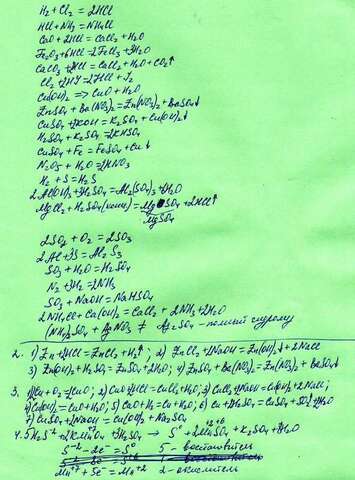 H₂ + Cl₂ = 2HCl
HCl + NH₃ = NH₄Cl
CaO + 2HCl = CaCl₂ + H₂O
Fe₂O₃ + 6HCl = 2FeCl₃ + 3H₂O
CaCO₃ + 2HCl = CaCl₂ + H₂O + CO₂↑
Cl₂ + 2HI = 2HCl + I₂
Cu(OH)₂ => CuO + H₂O
ZnSO₄ + Ba(NO₃)₂ = Zn(NO₃)₂ + BaSO₄↓
CuSO₄ + 2KOH = K₂SO₄ + Cu(OH)₂↓
H₂SO₄ + K₂SO₄ = 2KHSO₄
CuSO₄ + Fe = FeSO₄ + Cu↓
N₂O₅ + H₂O = 2HNO₃
H₂ + S = H₂S
2Al(OH)₃ + 3H₂SO₄ = Al₂(SO₄)₃ + 6H₂O
MgCl₂ + H₂SO₄ (конц) = MgSO₄ + 2HCl↑
MgSO₄
2SO₂ + O₂ = 2SO₃
2Al + 3S = Al₂S₃
SO₃ + H₂O = H₂SO₄
N₂ + 3H₂ = 2NH₃
SO₃ + NaOH = NaHSO₄
2NH₄Cl + Ca(OH)₂ = CaCl₂ + 2NH₃ + 2H₂O
(NH₄)₂SO₄ + AgNO₃ ≠ Ag₂SO₄ -
2. 1) Zn + 2HCl = ZnCl₂ + H₂↑; 2) ZnCl₂ + 2NaOH = Zn(OH)₂↓ + 2NaCl
3) Zn(OH)₂ + H₂SO₄ = ZnSO₄ + 2H₂O; 4) ZnSO₄ + Ba(NO₃)₂ = Zn(NO₃)₂ + BaSO₄↓
3. 1) 2Cu + O₂ = 2CuO; 2) CuO + 2HCl = CuCl₂ + H₂O; 3) CuCl₂ + 2NaOH = Cu(OH)₂ + 2NaCl;
4) Cu(OH)₂ = CuO + H₂O; 5) CuO + H₂ = Cu + H₂O; 6) Cu + 2H₂SO₄ = CuSO₄ + SO₂↑ + 2H₂O
7) CuSO₄ + 2NaOH = Cu(OH)₂ + Na₂SO₄
4. 5H₂S⁻² + 2KMn⁺⁷O₄ + 3H₂SO₄ → 5S⁰ + 2Mn⁺²SO₄ + K₂SO₄ + 8H₂O
S⁻² - 2e⁻ = S⁰ 5 - восстановитель
Mn⁺⁷ + 5e⁻ = Mn⁺² 2 - окислитель